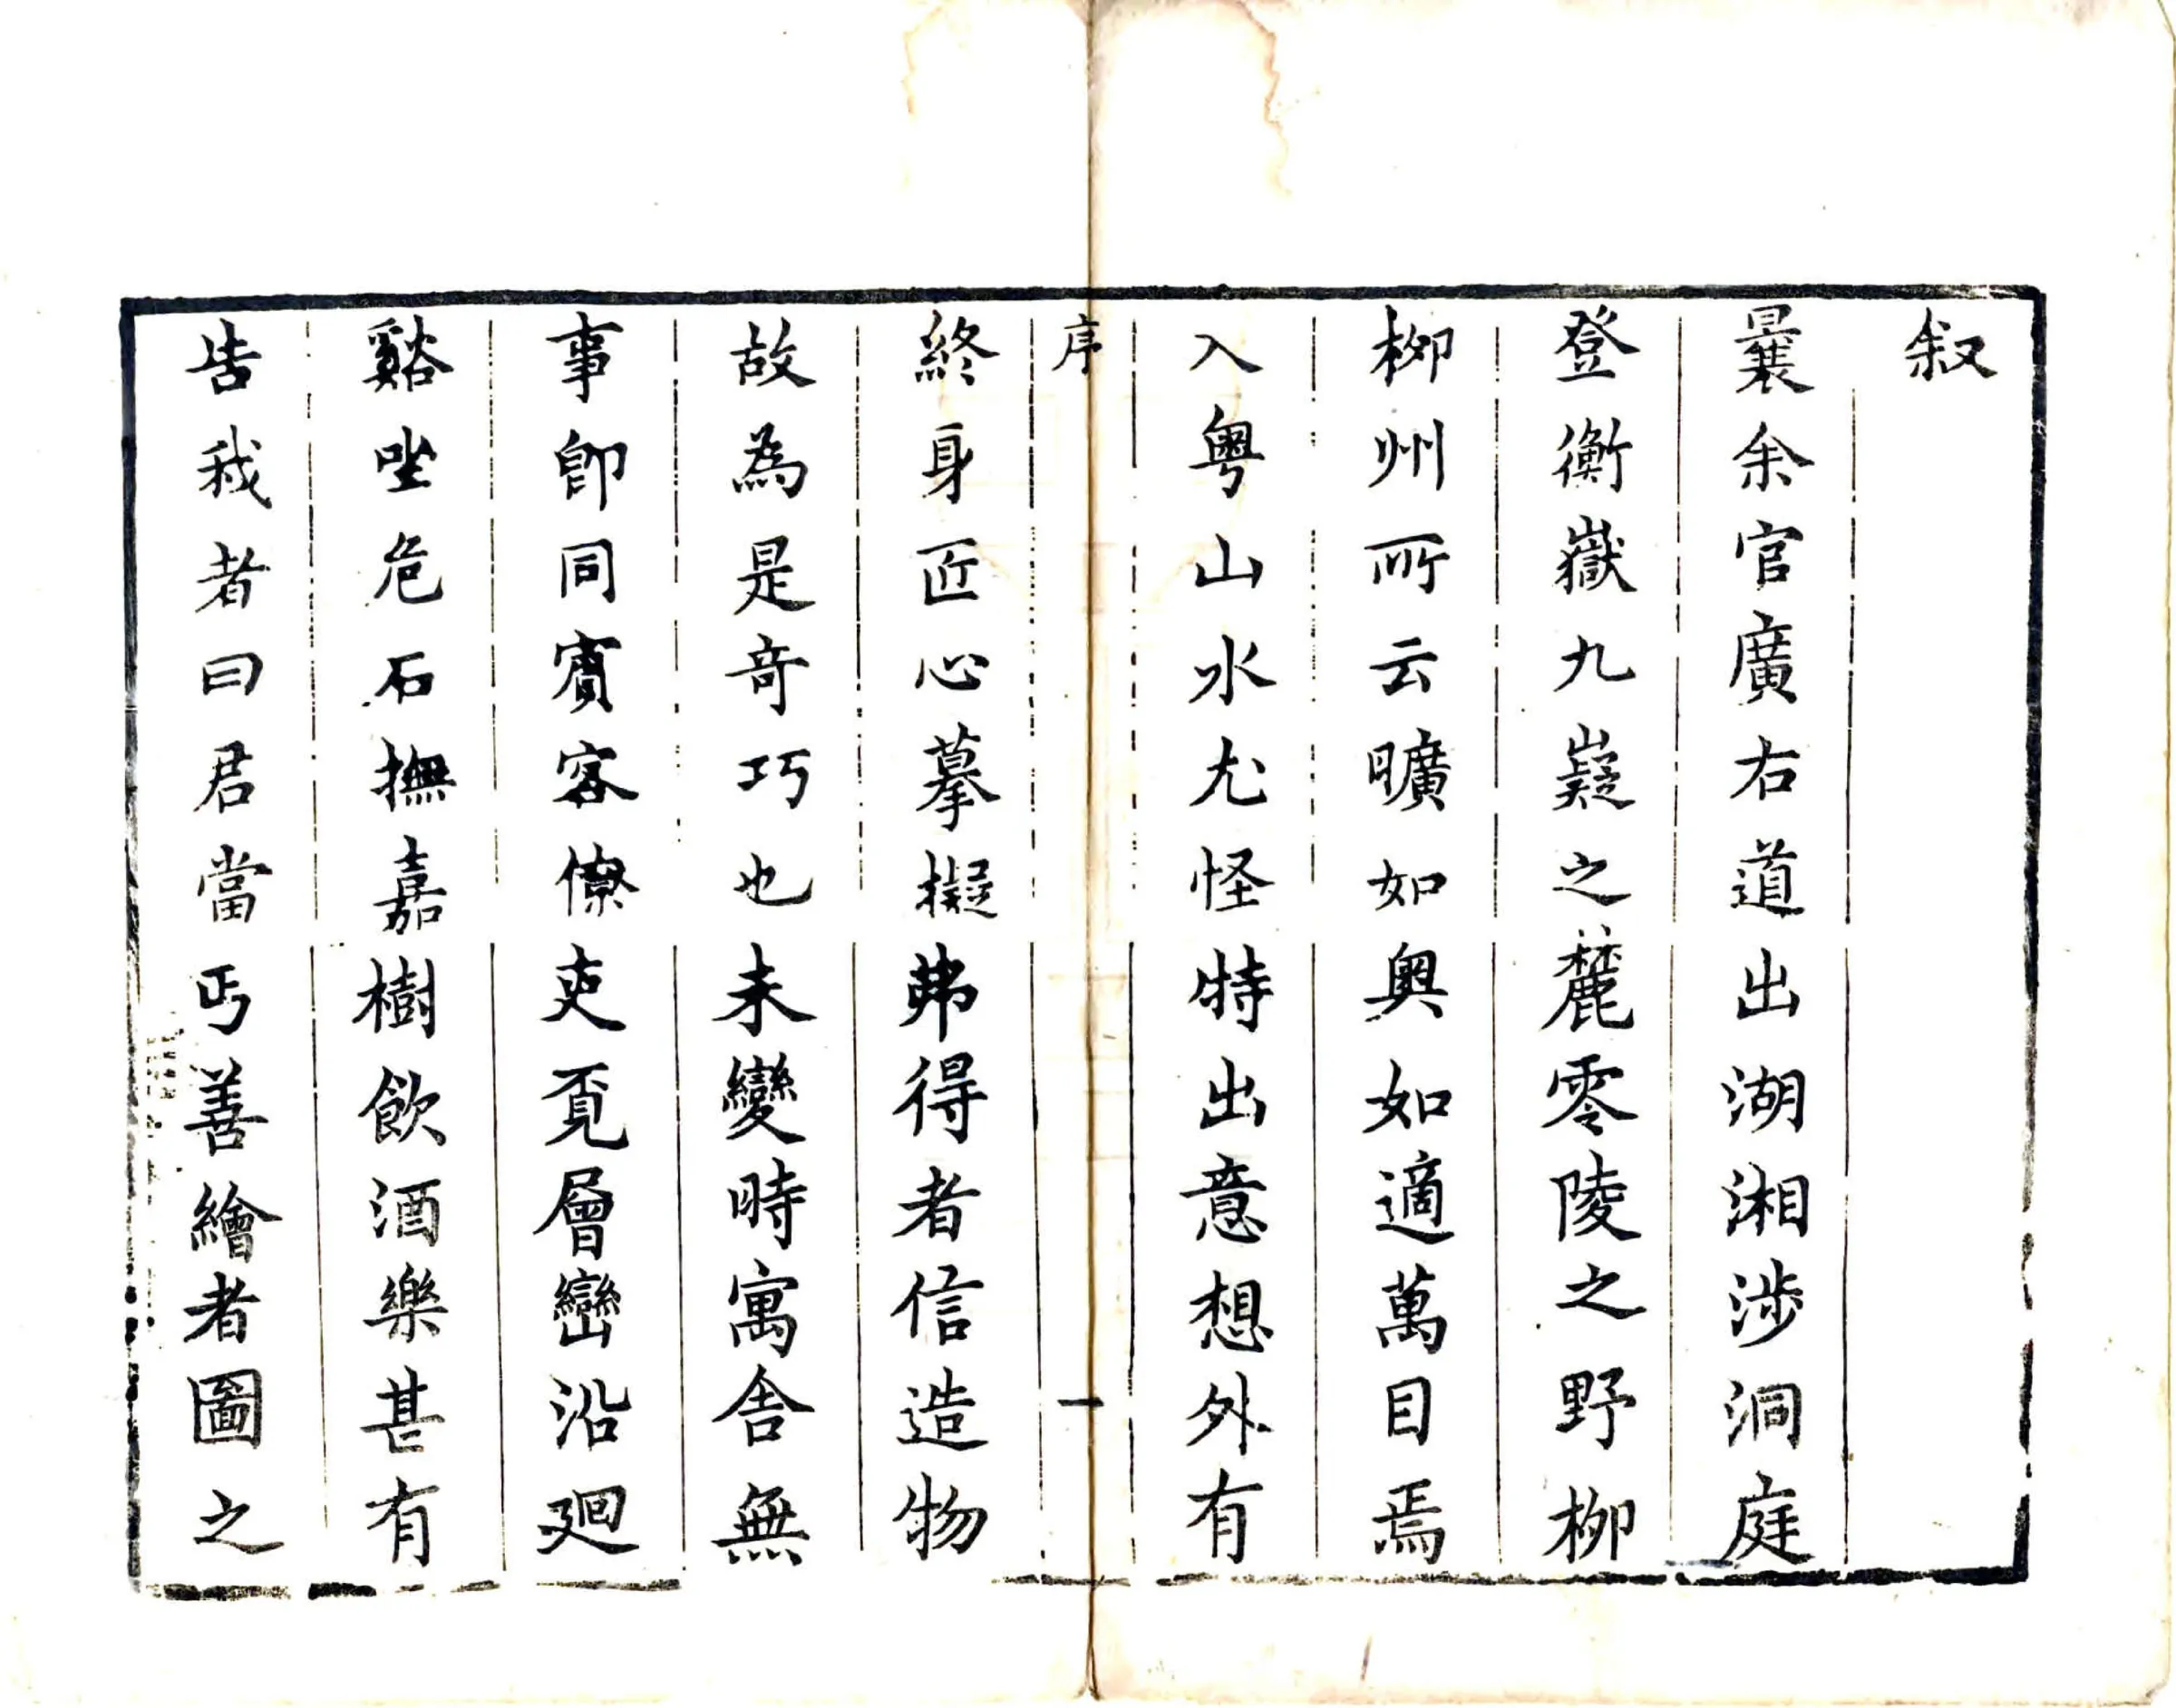 叙
曩余官廣右道出湖湘涉洞庭
登衡嶽九嶷之麓零陵之野柳
柳州所云曠如奧如適萬目焉
入粵山水尤怪特出意想外有
序
一
終身匠心摹擬弗得者信造物
故為是奇巧也未變時寓舍無
事即同賓客僚吏覔層巒沿廻
谿坐危石撫嘉樹飲酒樂甚有
告我者曰君當丐善繪者圖之